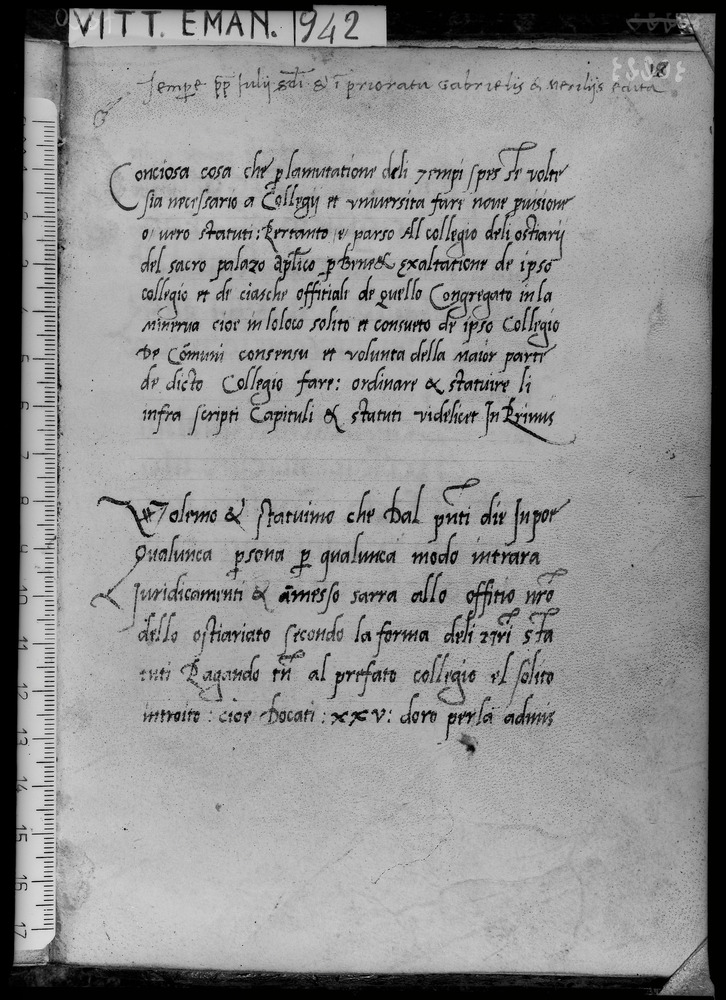 VITT. EMAN. 942
18
Tempe pp Julij scdi & i prioratu Gabrielis de
Conciosa cosa che p lamutatione deli Tempi spes se volte
sia necessario a Collegij et vniversita fare nove puisione
o vero statuti: Pertanto e parso Al collegio deli ostiarij
del sacro palazo aplico p bene & exaltatione de ipso
collegio et de ciasche offitiale de quello Congregato in la
minerva cioe in loloco solito et consueto de ipso Collegio
De Cōmuni consensu et volunta della maior parte
de dicto Collegio fare: ordinare & statuire li
infra scripti Capituli & statuti videlicet In Primis
Volemo & statuimo che Dal pnti die In poe
Qualunca psona p qualunca modo intrara
Juridicamenti & amesso sarra allo offitio nro
dello ostiariato secondo la forma deli sta
tuti Pagando tn al prefato collegio el solito
introito: cioe Docati: xxv: doro per la admis
10
11
12
13
14
15
16
17